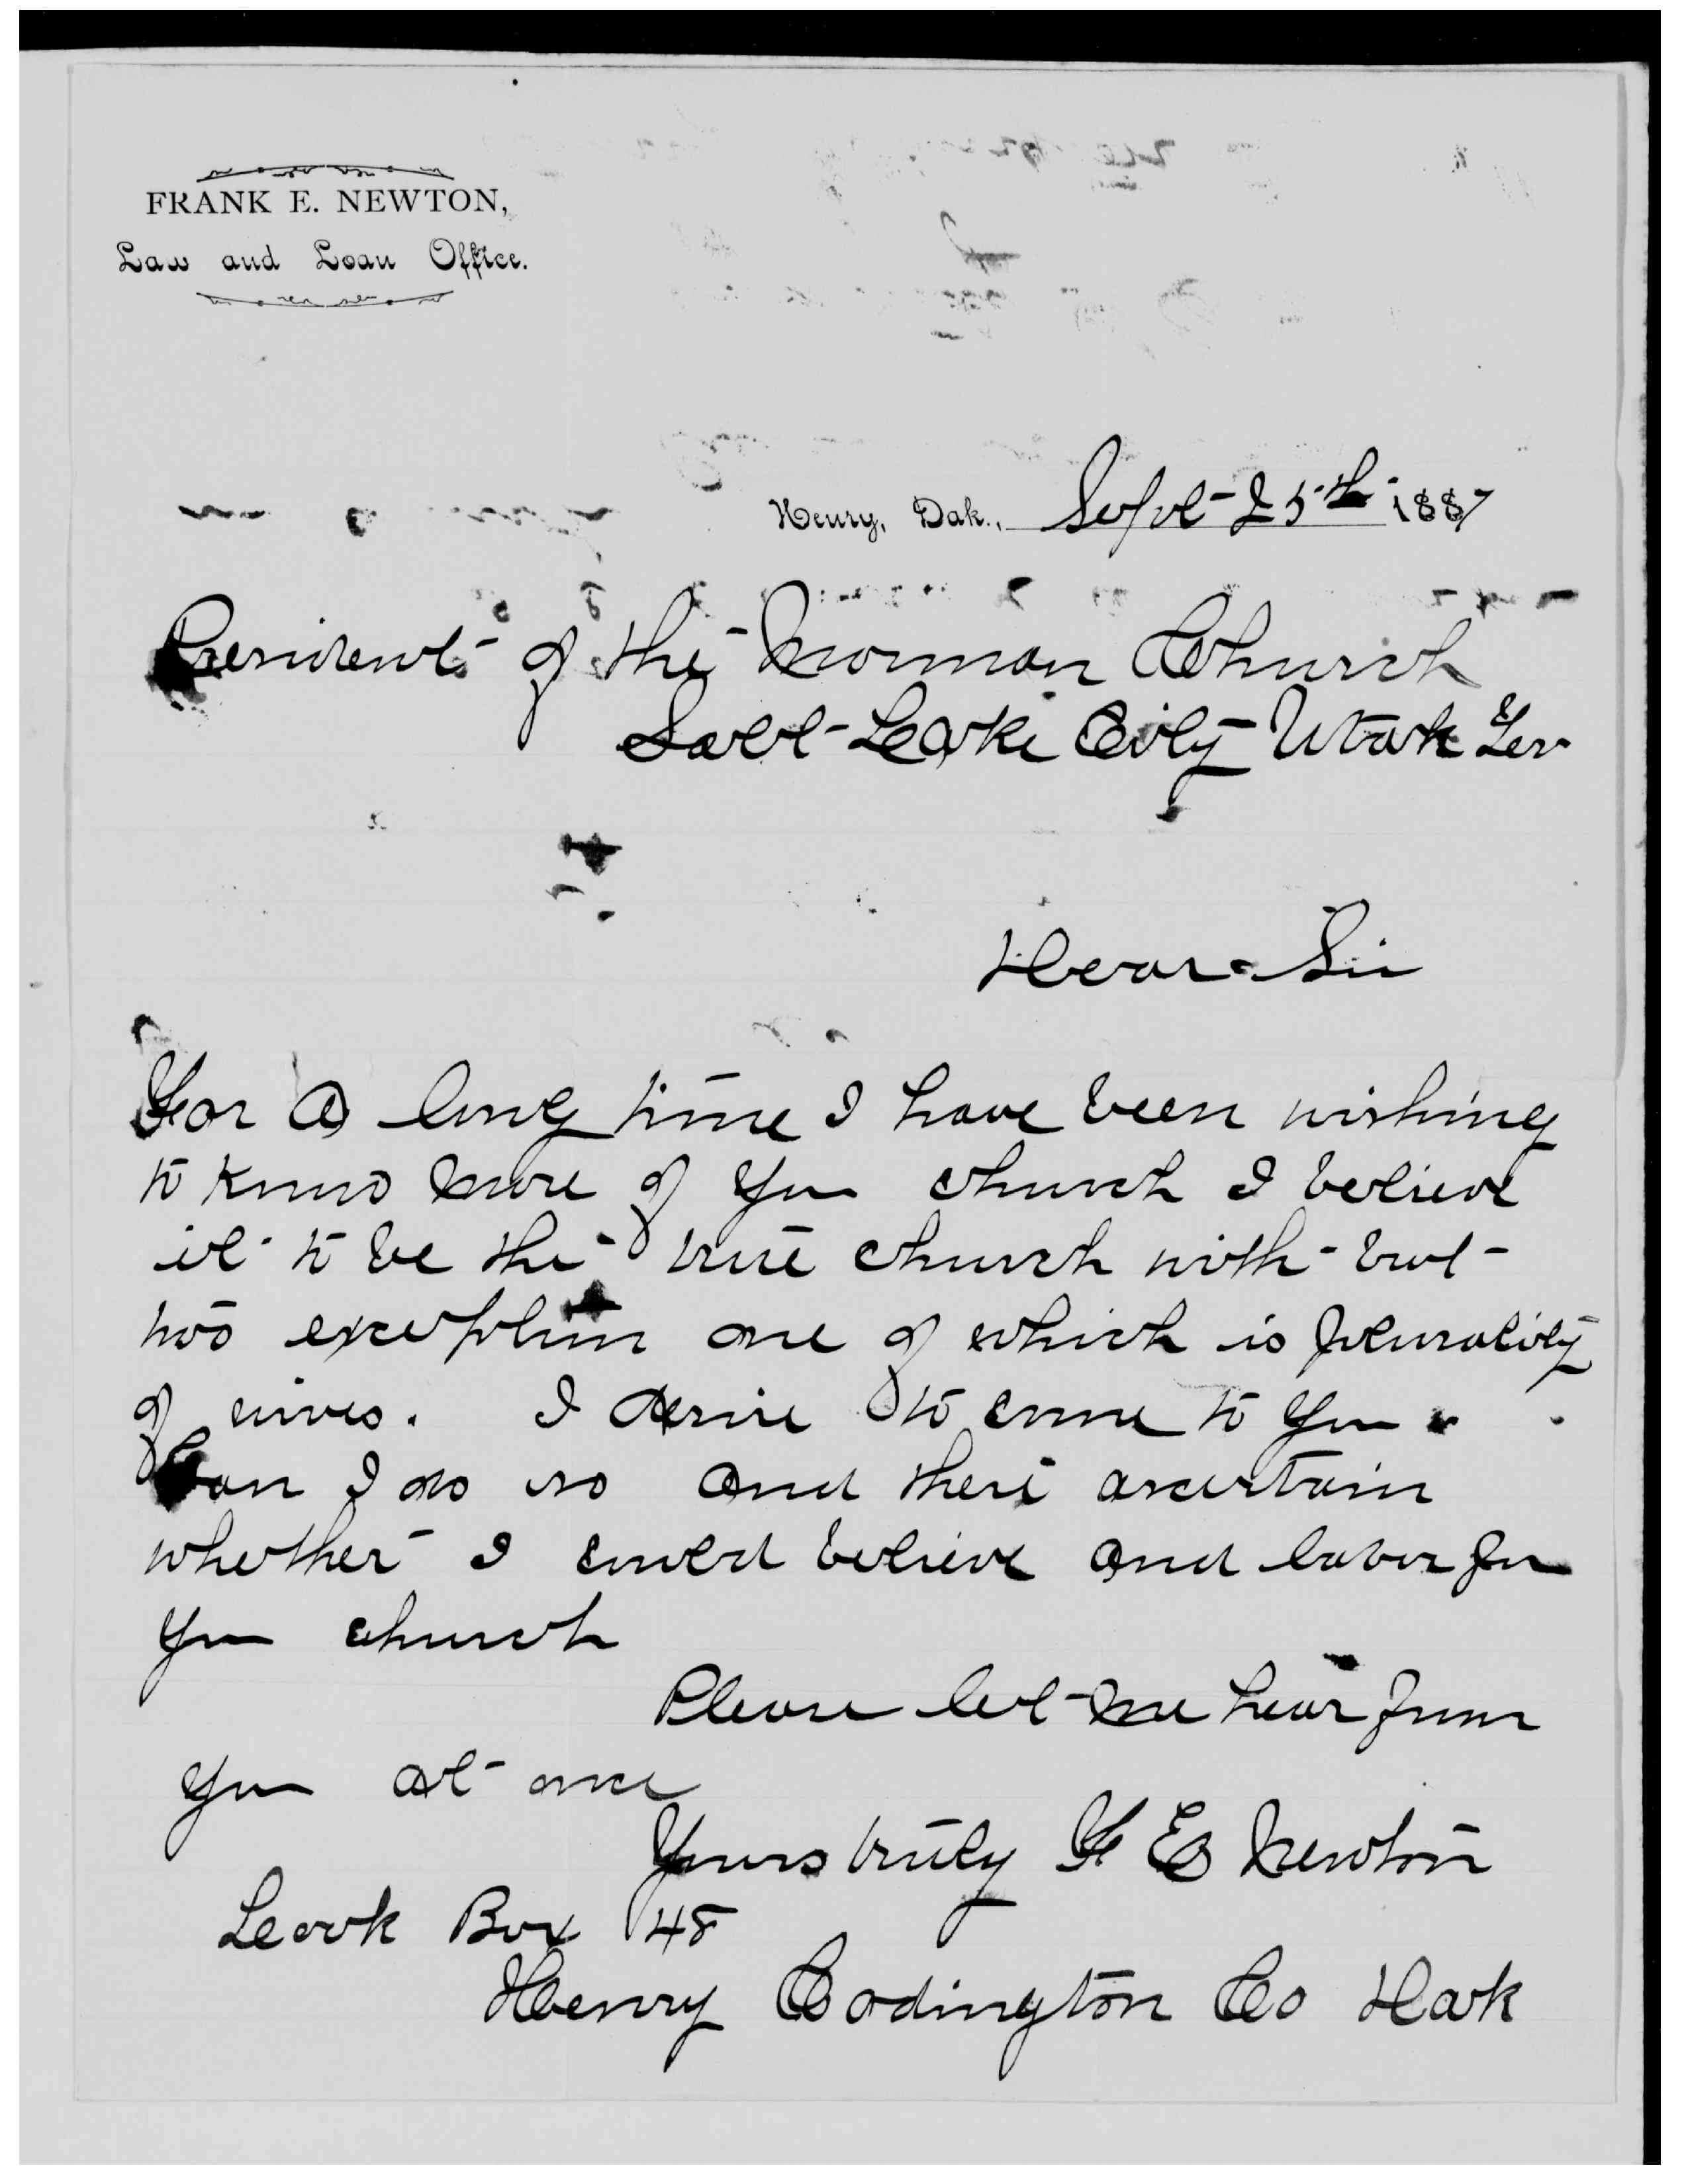 FRANK E. NEWTON,
Law and Loan Office.
Henry, Dak., Sept 25th 1887
President of the Mormon Church
Salt Lake City Utah Ter
Dear Sir
For a long time I have been wishing
to know more of you church I believe
it to be the true church with but
two exception one of which is plurality
of wives. I desire to come to you.
Can I do so and there ascertain
whether I could believe and labor for
you church
Please let me hear from
you at once
Yours truly F E Newton
Lock Box 48
Henry Codington Co Dak